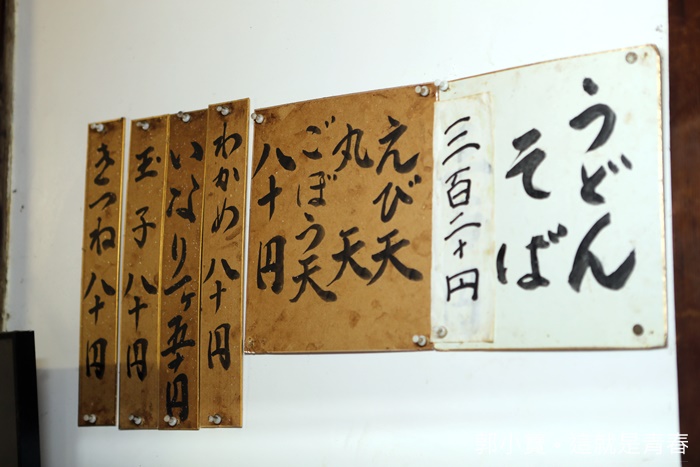 うどん
そば
三百二十円
えび天
丸天
ごぼう天
八十円
わかめ 八十円
いなり一ヶ五十円
玉子 八十円
きつね 八十円
是青春